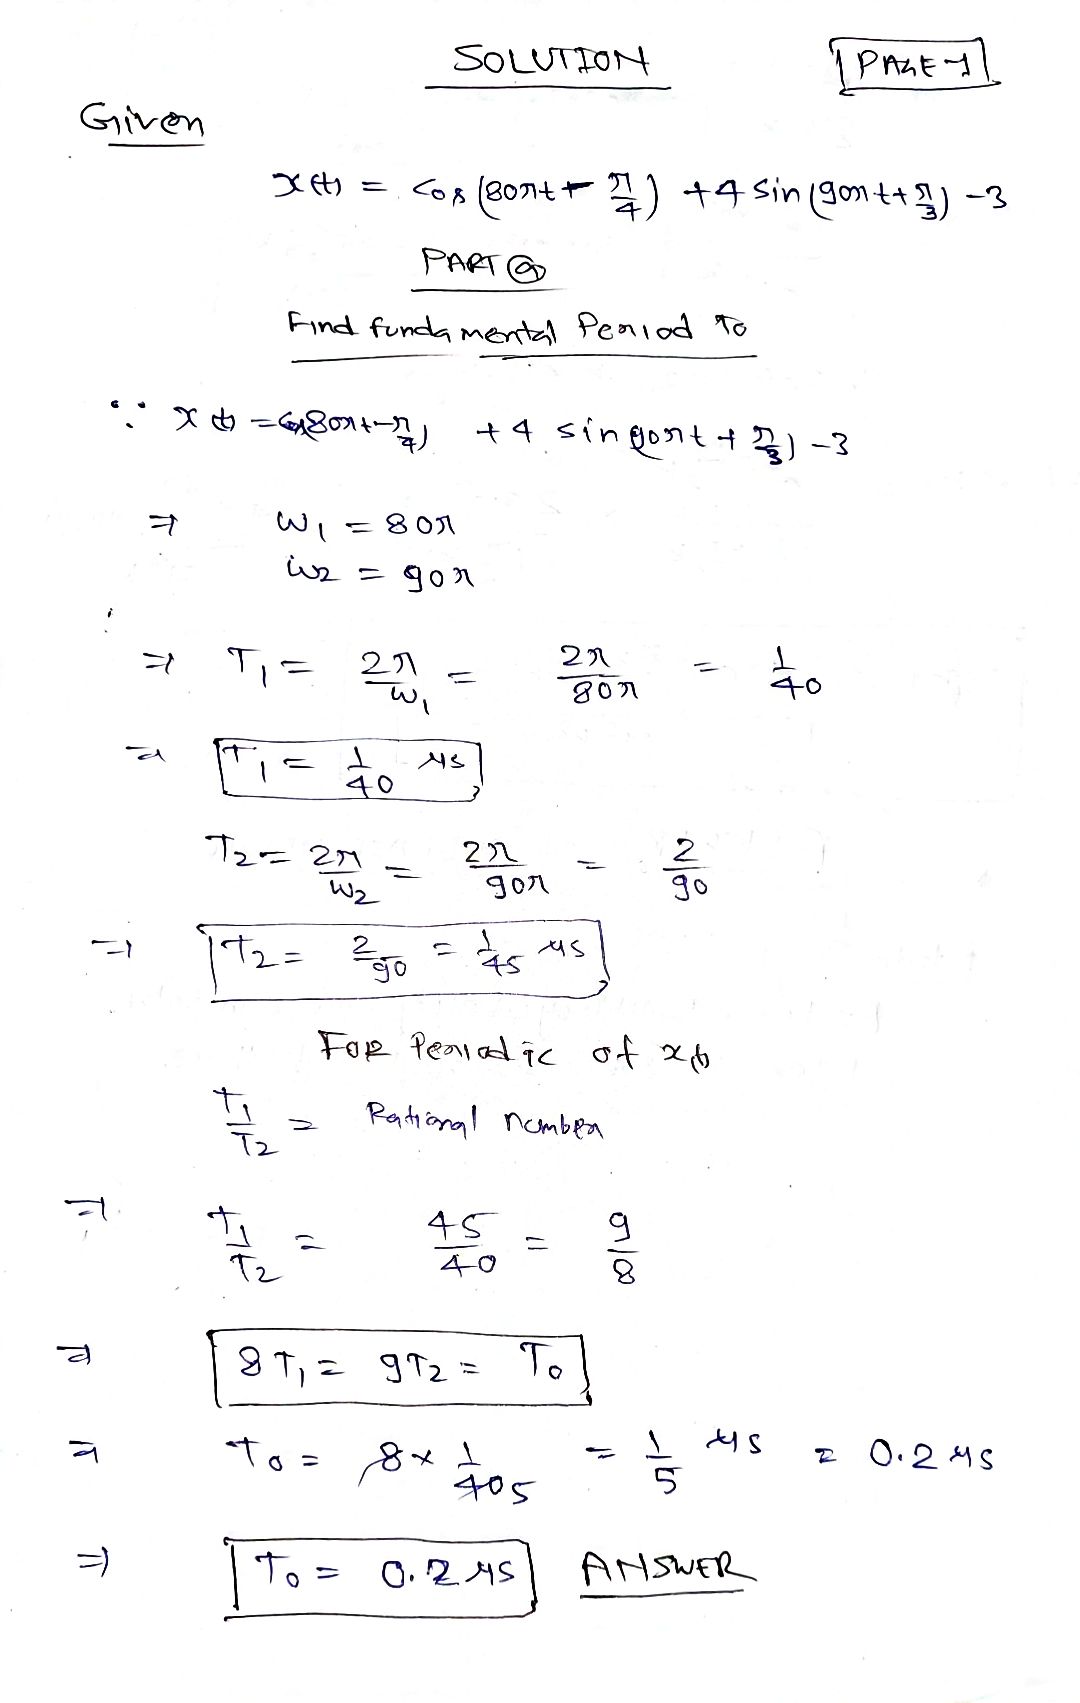 SOLUTION
PAGE-1
Given
x(t) = cos(80πt - π/4) + 4 sin(90πt + π/3) - 3
PART (a)
Find fundamental Period To
∵ x(t) = cos(80πt - π/4) + 4 sin 90πt + π/3) - 3
⇒ W1 = 80π
W2 = 90π
⇒ T1 = 2π/W1 = 2π/80π = 1/40
⇒ T1 = 1/40 μs
T2 = 2π/W2 = 2π/90π = 2/90
⇒ T2 = 2/90 = 1/45 μs
FOR Periodic of x(t)
T1/T2 = Rational number
⇒ T1/T2 = 45/40 = 9/8
⇒ 8T1 = 9T2 = To
⇒ To = 8 × 1/40 5 = 1/5 μs = 0.2 μs
⇒ To = 0.2 μs ANSWER